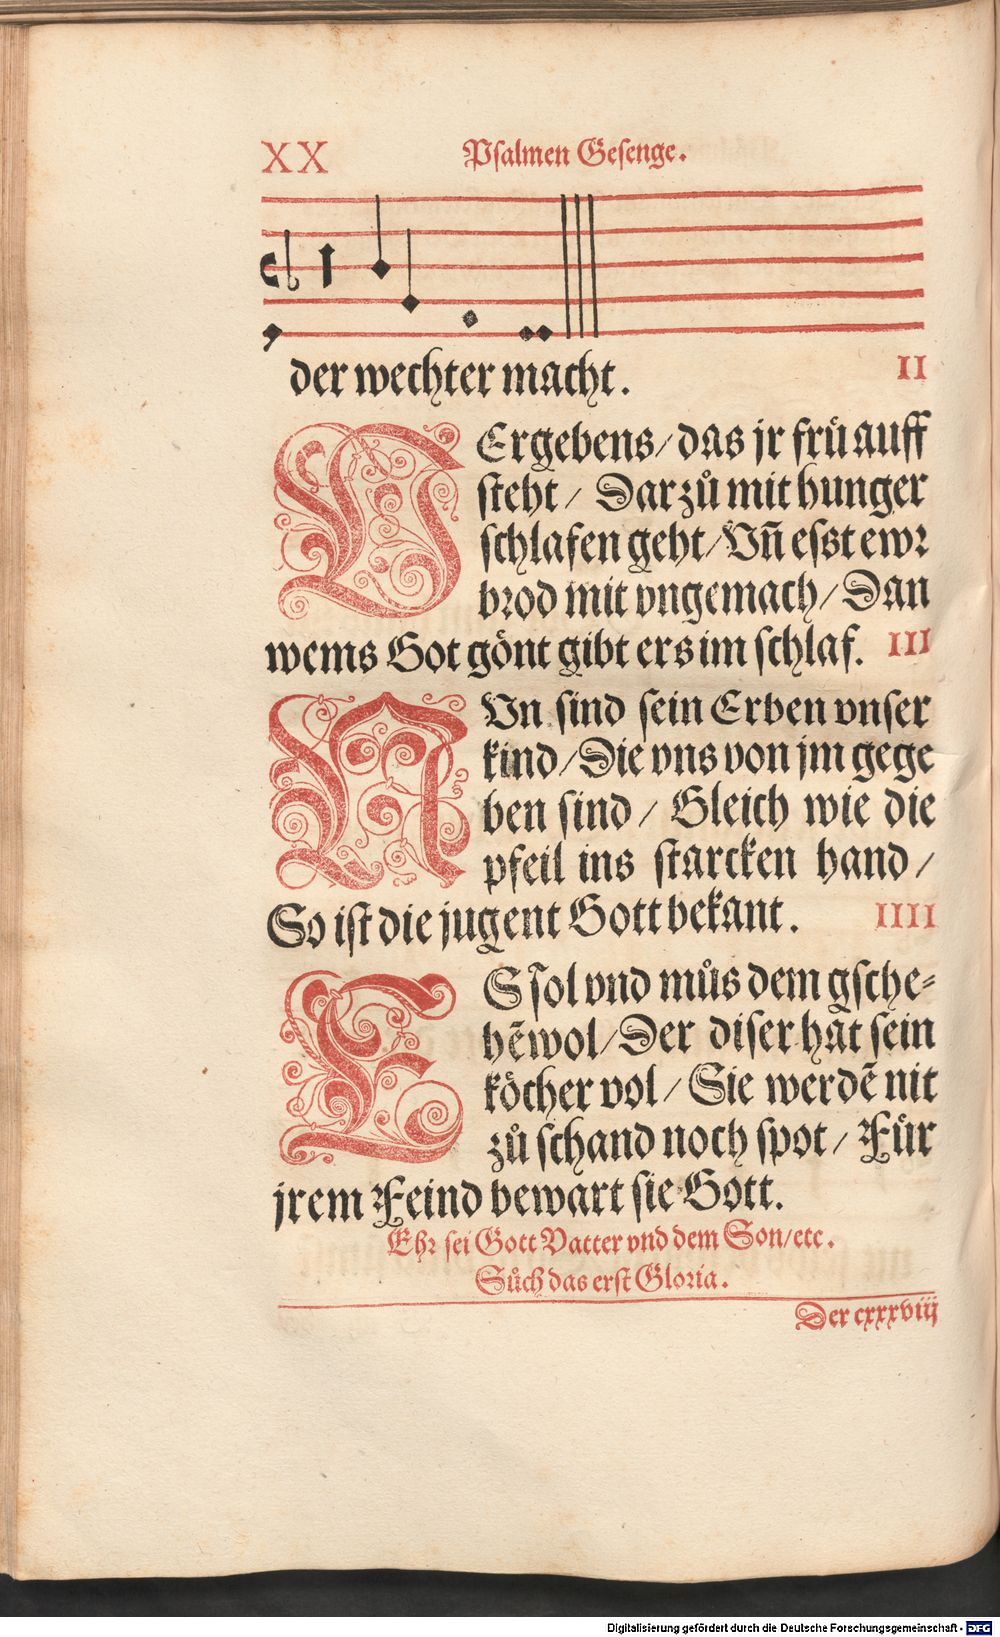 XX Psalmen Gesenge.
der wechter macht. II
VErgebens/das jr frů auff
steht/ Darzů mit hunger
schlafen geht/Vñ esst ewr
brod mit vngemach/Dan
wems Got gönt gibt ers im schlaf. III
NVn sind sein Erben vnser
kind/Die vns von jm gege
ben sind/ Gleich wie die
pfeil ins starcken hand/
So ist die jugent Gott bekant. IIII
ES sol vnd můs dem gsche⸗
hẽ wol/Der diser hat sein
köcher vol/ Sie werdẽ nit
zů schand noch spot/ Für
jrem Feind bewart sie Gott.
Ehr sei Gott Vatter vnd dem Son/etc.
Sůch das erst Gloria.
Der cxxxviij
Digitalisierung gefördert durch die Deutsche Forschungsgemeinschaft - DFG